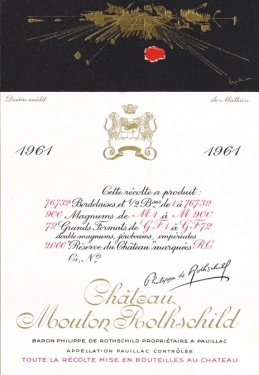 Dessin inédit de Mathieu
1961 1961
Cette récolte a produit :
76732 Bordelaises et 1/2 Bses de 1 à 76732
900 Magnums de M 1 à M 900
72 Grands Formats de G F 1 à G F 72
double-magnums, jéroboams, impériales
2000 "Réserve du Château" marqués R.C.
Ci, No
Philippe de Rothschild
Château
Mouton Rothschild
BARON PHILIPPE DE ROTHSCHILD PROPRIÉTAIRE A PAUILLAC
APPELLATION PAUILLAC CONTRÔLÉE
TOUTE LA RÉCOLTE MISE EN BOUTEILLES AU CHATEAU